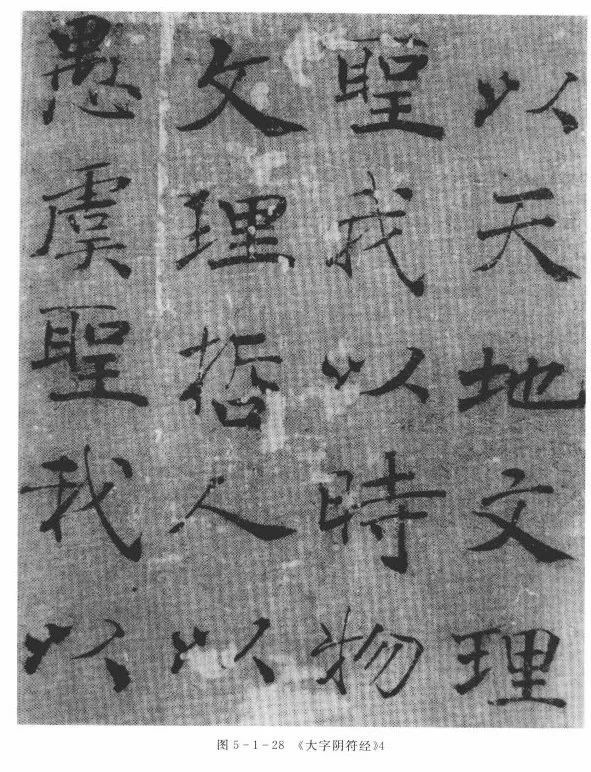 以天地文理
聖我以時物
文理哲人以
愚虞聖我以
图5-1-28 《大字阴符经》4